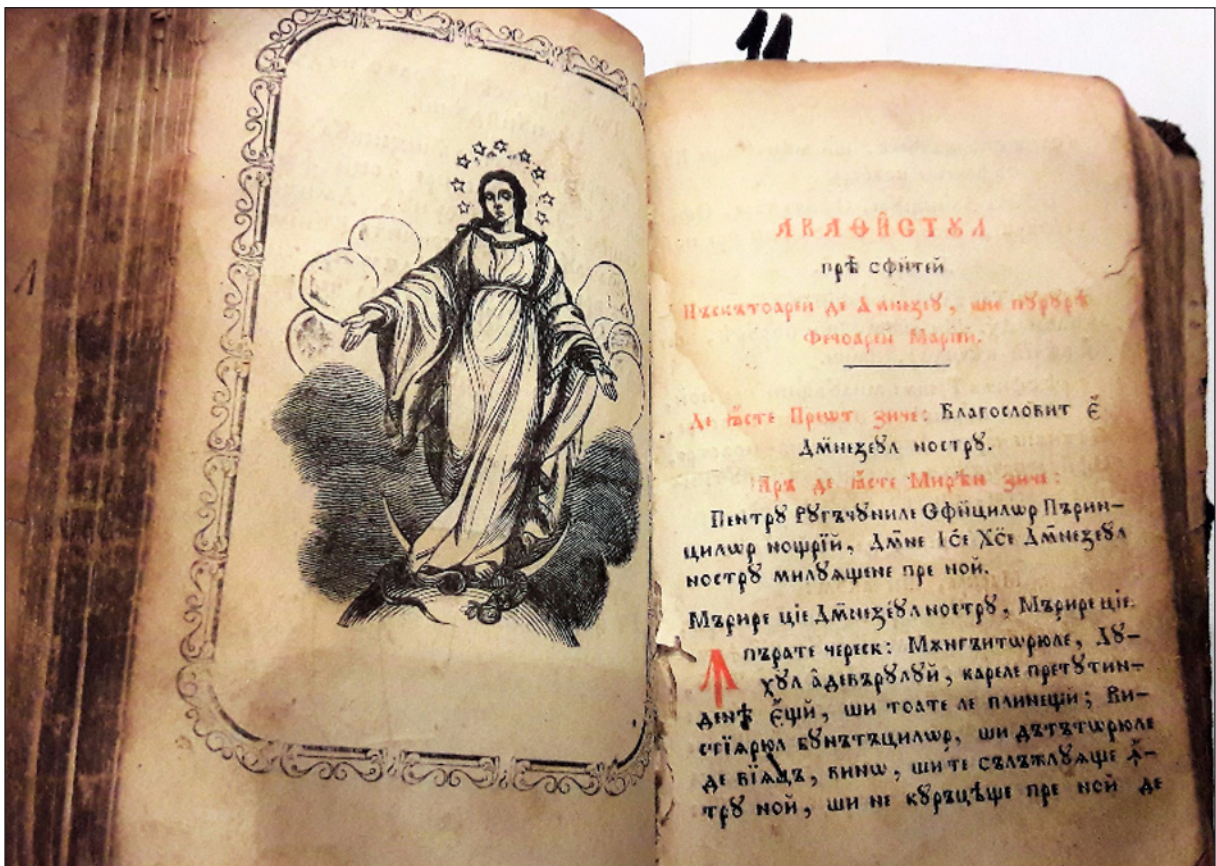 11
АКАѲИСТꙊЛ
прѣ сфи́тей
Нъскътоарей де Дм̃незеꙋ, ши пꙋрꙋрѣ
Фечоарей Марїей.
Де ꙗ҆сте Преѡт зиче: Благословит є҆
Дм̃незеꙋл ностру.
Ꙗръ де ꙗ҆сте Мирѣн зиче:
Пентрꙋ Рꙋгъчꙋниле Сфи́цилѡр Пърин-
цилѡр ноштрїй, Дм̃не Іс҃е Хс҃е Дм̃незеꙋл
нострꙋ милꙋѧщене пре ной.
Мърире ціе Дм̃незеꙋл нострꙋ, Мърире ціе.
Ꙟпърате череск: Мѫнгъитѡрюле, Дꙋ-
хꙋл а҆девърꙋлꙋй, кареле претꙋтин-
денѣ є҆щй, ши тоате ле плинещй; Ви-
стїѧрюл бꙋнътъцилѡр, ши дътътѡрюле
де вїѧцъ, винѡ, ши те сълъжлꙋѧще ꙟ-
трꙋ ной, ши не кꙋръцѣще пре ной де